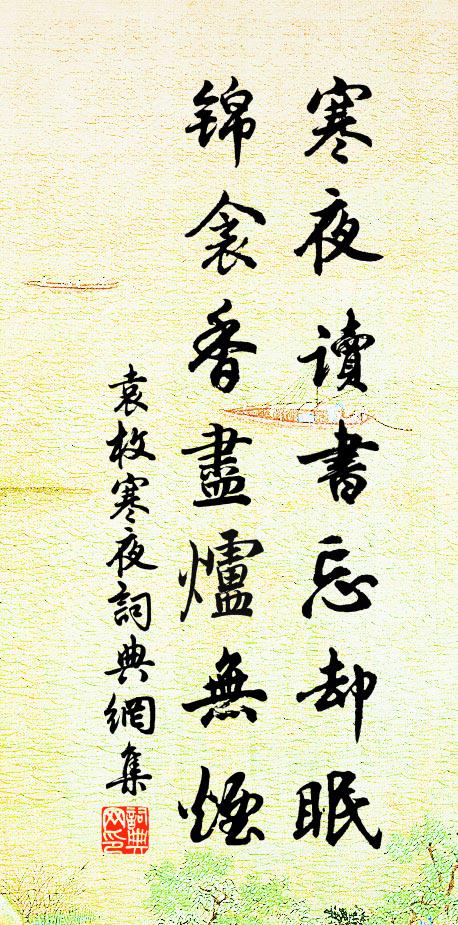 寒夜讀書忘却眠
錦衾香盡爐無煙
袁枚寒夜詞典網集
詞典網印